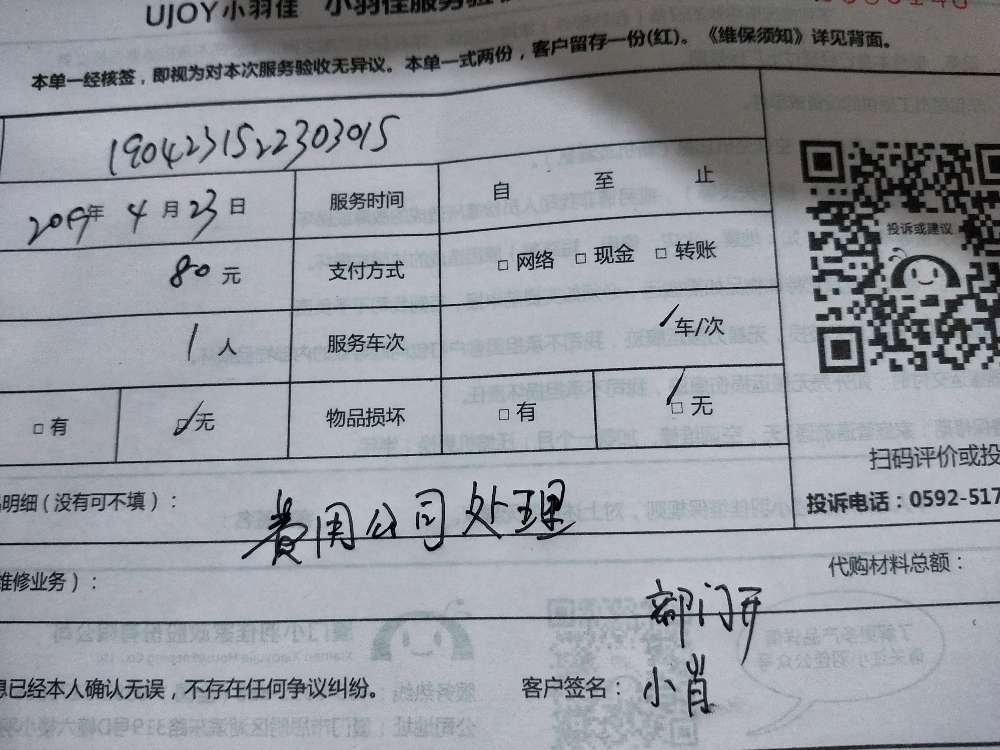 UJOY小羽佳 小羽佳服务验
本单一经核签，即视为对本次服务验收无异议。本单一式两份，客户留存一份(红)。《维保须知》详见背面。
1904231522303015
2019年 4月23日 服务时间 自 至 止
80元 支付方式 □网络 □现金 □转账
1人 服务车次 1车/次
□有 □无 物品损坏 □有 □无
投诉或建议
扫码评价或投
投诉电话：0592-517
明细（没有可不填）： 费用公司处理
维修业务）： 代购材料总额：
部门开
息已经本人确认无误，不存在任何争议纠纷。 客户签名：小肖